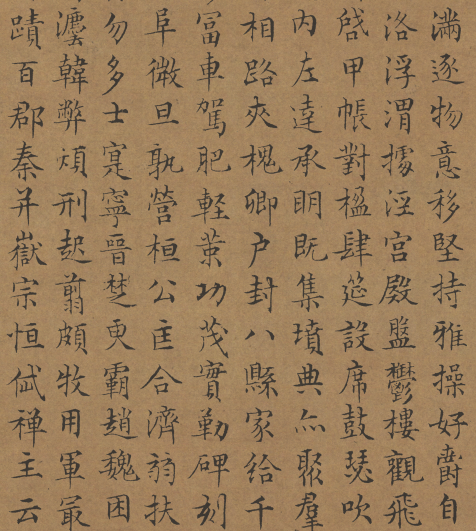 滿逐物意移堅持雅操好爵自
洛浮渭據涇宮殿盤鬱樓觀飛
啓甲帳對楹肆筵設席鼓瑟吹
內左達承明既集墳典亦聚羣
相路夾槐卿戶封八縣家給千
富車駕肥輕策功茂實勒碑刻
阜微旦孰營桓公匡合濟弱扶
勿多士寔寧晉楚更霸趙魏困
灋韓弊煩刑起翦頗牧用軍最
蹟百郡秦并嶽宗恒岱禪主云